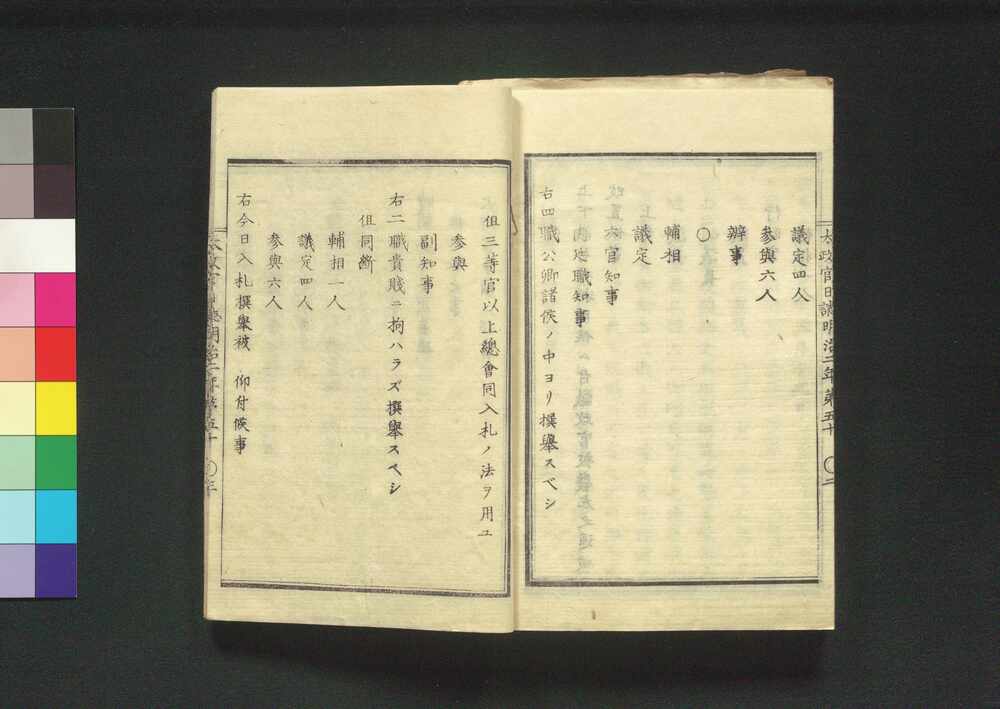 太政官日誌明治二年第五十 〇二
議定四人
參與六人
辨事
〇
輔相
議定
六官知事
內廷職知事
右四職公卿諸侯ノ中ヨリ撰擧スベシ
但三等官以上總會同入札ノ法ヲ用ユ
參與
副知事
右二職貴賤ニ拘ハラズ撰擧スベシ
但同斷
輔相一人
議定四人
參與六人
右今日入札撰擧被 仰付候事